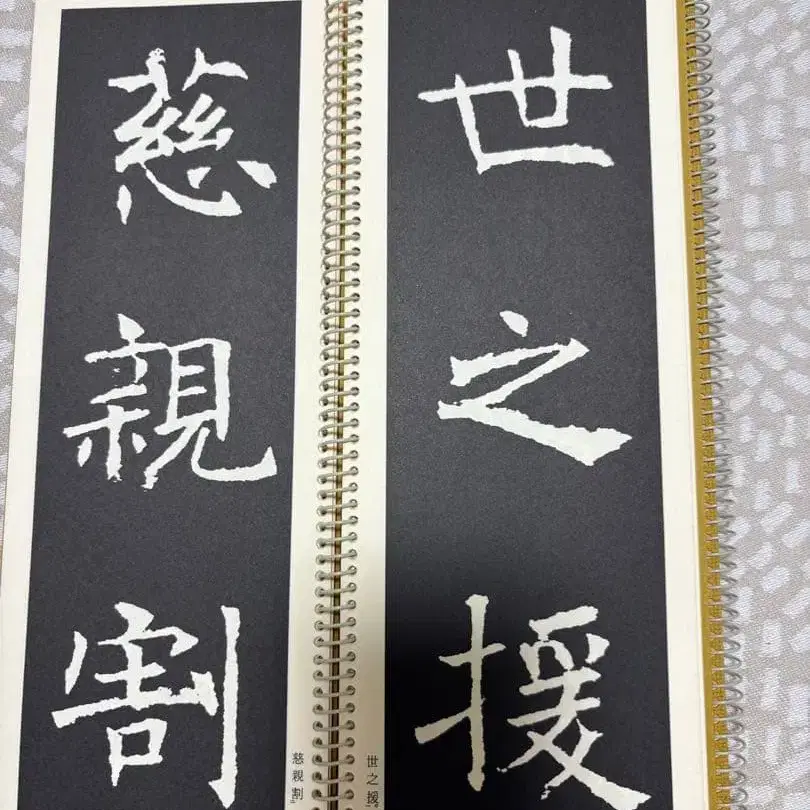 世之援
世之援〟
慈親割
慈親割〟